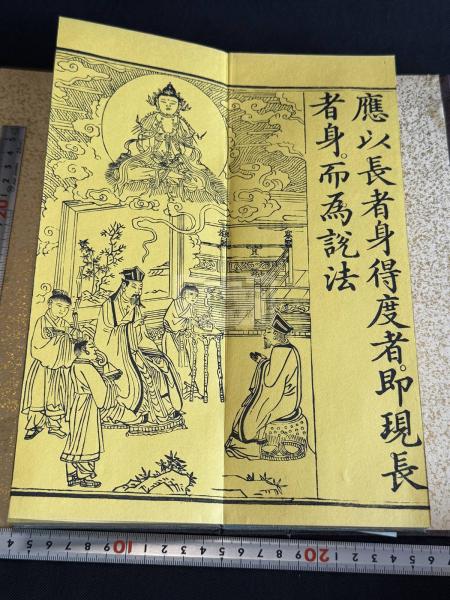 應以長者身得度者。即現長
者身。而為說法
10
20
20